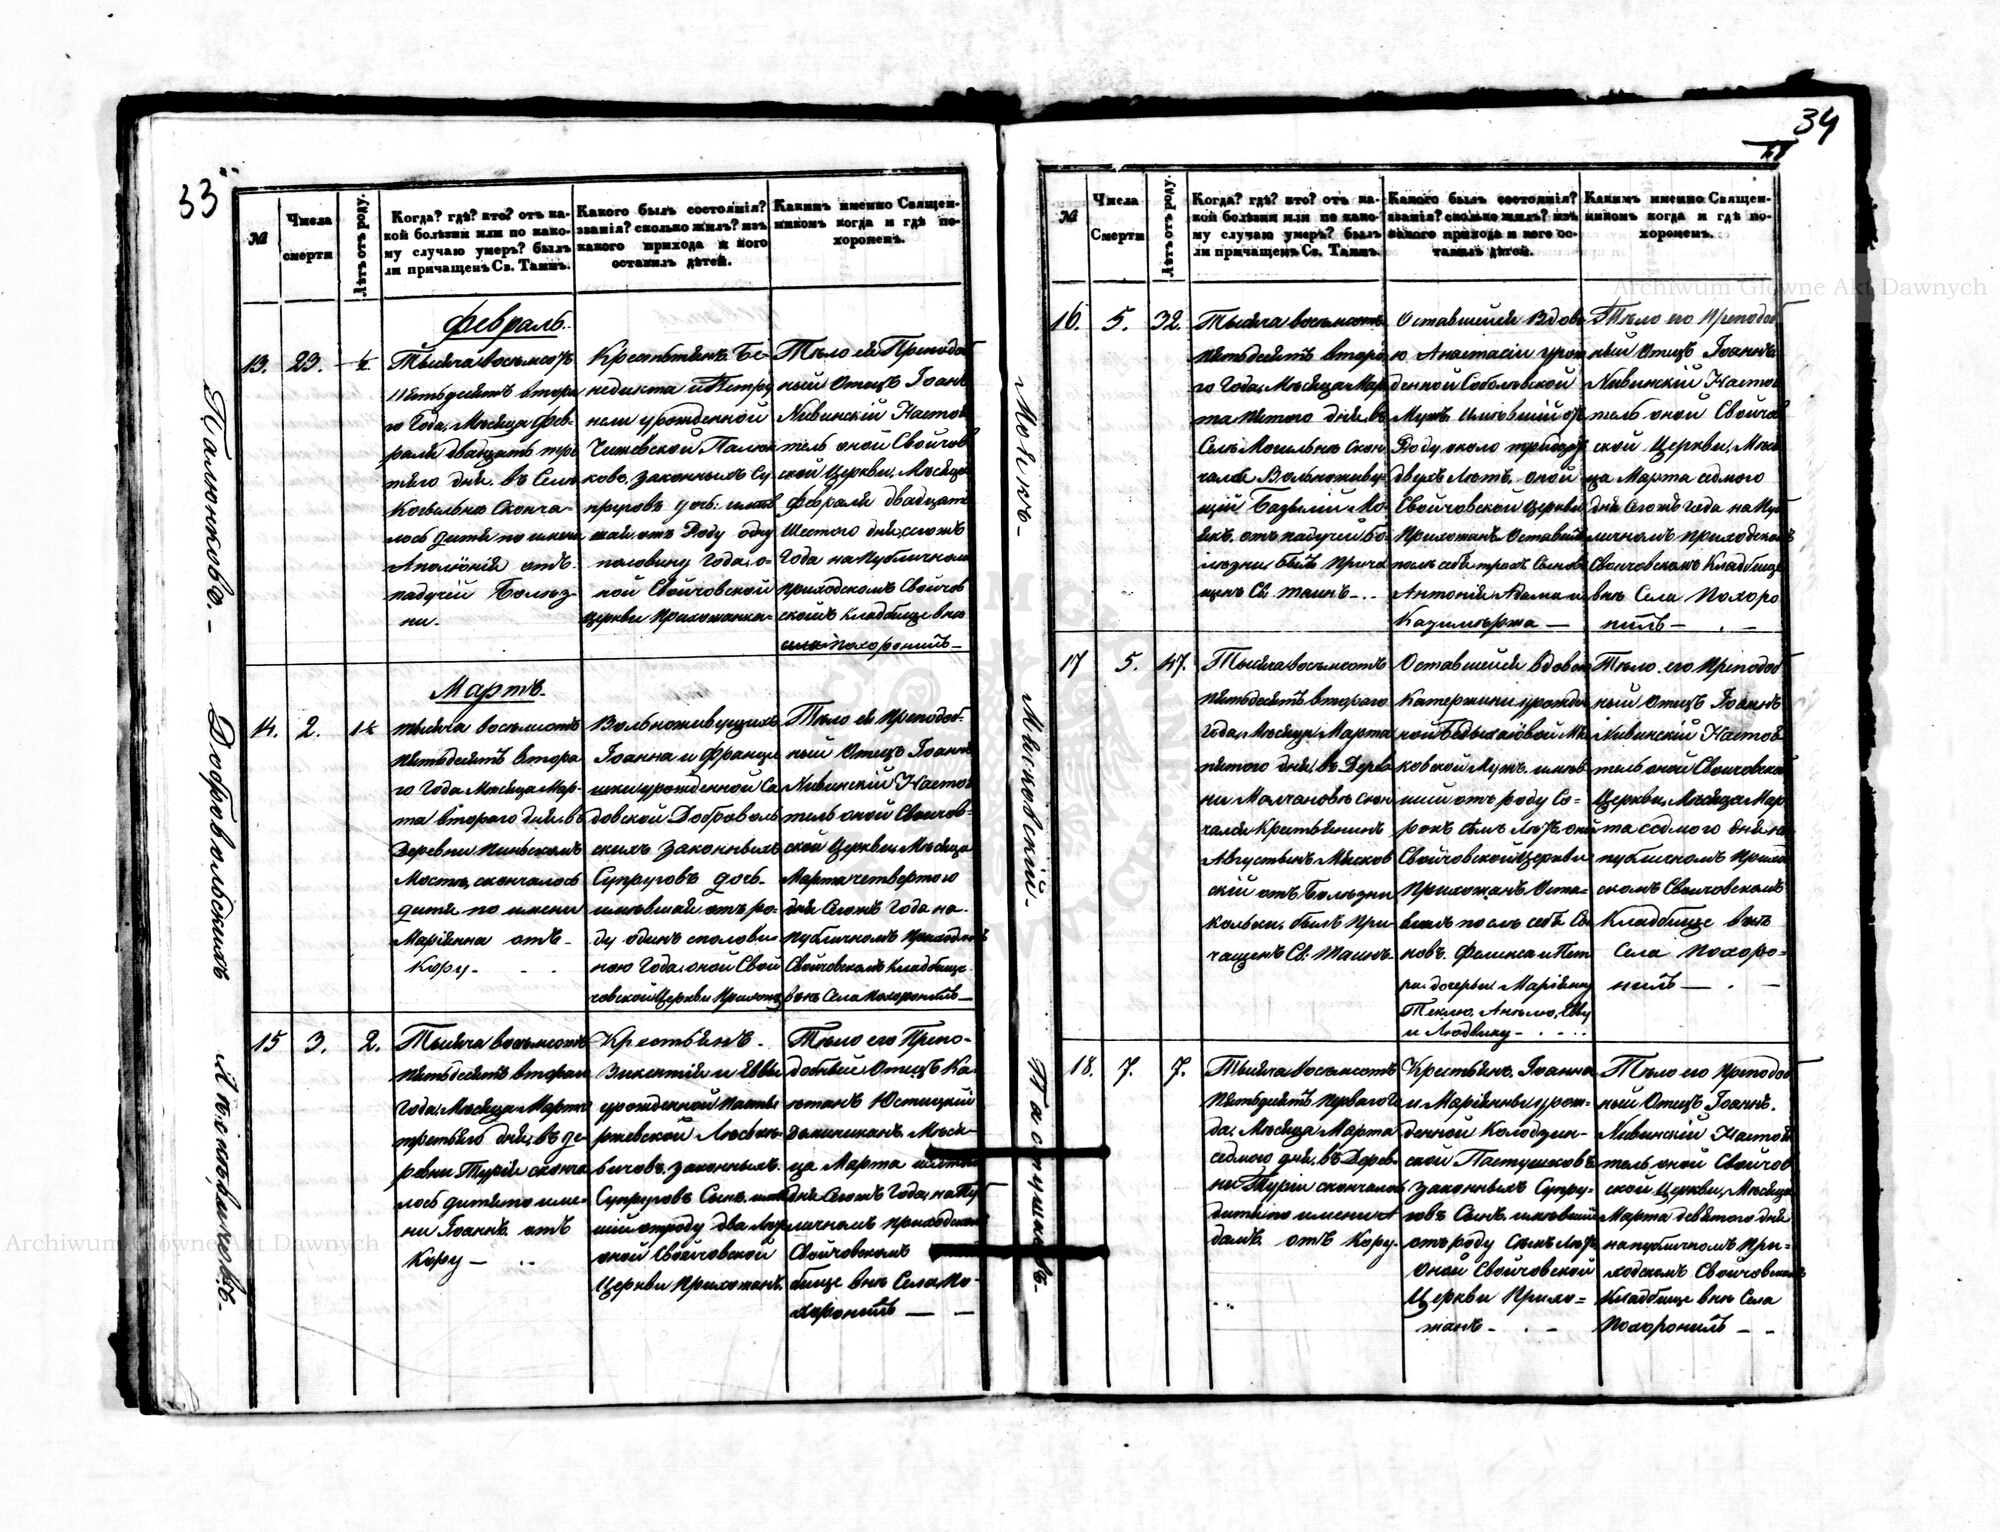 33
Палюнковъ. –
Добровольскихъ
№
Числа
смерти
Лѣтъ отъ роду.
Когда? гдѣ? кто? отъ ка-
кой болѣзни или по како-
му случаю умеръ? былъ
ли причащенъ Св. Таинъ.
Какого былъ состоянія?
званія? сколько жилъ? изъ
какого прихода и кого
оставилъ дѣтей.
Какимъ именно Священ-
никомъ когда и гдѣ по-
хороненъ.
Февраль.
13. 23. ½
Тысяча восемсотъ
пятьдесятъ втора
го Года, Мѣсяца Фев-
раля двадцать тре
тяго дня, въ Селѣ
Сконча-
лось дитя по имени
Аполонія отъ
падучей Болѣз-
ни.
Крестьянъ Бе-
недикта и Петро
нели урожденной
Чижевской Палюн
ковъ, законныхъ Су
пруговъ дочь: имѣв
шая отъ Роду одну
половину года, о-
ной Свойчовской
Церкви Прихожанка-
Тѣло ея Преподоб
ный Отецъ Іоаннъ
Нивинскій Настоя
тель оной Свойчов
ской Церкви, Мѣсяца
Февраля двадцать
Шестого дня, сегожъ
Года на Публичномъ
приходскомъ Свойчов
скомъ Кладбище внѣ
села похоронилъ –
Мартъ.
14. 2. 1½
Тысяча восемсотъ
пятьдесятъ втора
го Года Мѣсяца Мар-
та второго дня, въ
Деревни Пинскомъ
Мостѣ, скончалось
дитя по имени
Маріянна отъ-
Кору- . .
Вольноживущихъ
Іоанна и Франци
шки урожденной Са
довской Доброволь
скихъ законныхъ
Супруговъ дочь-
имѣвшая отъ ро-
ду одинъ споловы-
ною Года, оной Свой
човской Церкви Прихож
Тѣло ея Преподоб-
ный Отецъ Іоаннъ
Нивинскій Настоя
тель оной Свойчов-
ской Церкви Мѣсяца
Марта четвертого
дня Сегожъ Года на-
публичномъ приходскомъ
Свойчовскомъ Кладбище
внѣ Села Похоронилъ –
15 3. 2.
Тысяча восемсотъ
пятьдесятъ втораго
Года, Мѣсяца Марта
третьяго дня, въ де-
ревни Туріи сконча
лось дитя по име-
ни Іоаннъ отъ
Кору – . .
Крестьянъ.
Викентія и Еввы
урожденной
законныхъ
Супруговъ Сынъ имѣв
шій отроду два Лѣта
оной Свойчовской
Церкви Прихожанъ.
Тѣло его Препо-
добный Отецъ Ка-
етанъ Юстицкій
Доминиканъ Мѣся-
ца Марта
дня Сегожъ Года, на Пу
бличномъ приходскомъ
Свойчовскомъ
бище внѣ Села По-
хоронилъ – –
34
Моякъ-
Мысковскій-
Пастушковъ-
№
Числа
Смерти
Лѣтъ отъ роду.
Когда? гдѣ? кто? отъ ка-
кой болѣзни или по како-
му случаю умеръ? былъ
ли причащенъ Св. Таинъ.
Какого былъ состоянія?
званія? сколько жилъ? изъ
какого прихода и кого ос-
тавилъ дѣтей.
Какимъ именно Священ-
никомъ когда и гдѣ по-
хороненъ.
16. 5. 32.
Тысяча восемсотъ
пятьдесятъ второ
го Года, Мѣсяца Мар
та пятого дня, въ
Селѣ Могильно Скон
чался Вольноживу
щій Базылій Мо-
якъ, отъ падучей бо-
лѣзни былъ Прича
щенъ Св: таинъ – . .
Оставшейся Вдов
ю Анастасіи урож
денной Соболевской
Мужъ имѣвшій отъ
Роду около тридцать
двухъ Лѣтъ, оной
Свойчовской Церкви
Прихожанъ Оставив
послѣ себѣ трохъ Сынов
Антонія Адама и
Казимержа –
Тѣло его Преподоб
ный Отецъ Іоаннъ
Нивинскій Настоя
тель оной Свойчов
ской Церкви, Мѣся
ца Марта седмого
дня Сегожъ года на Пуб
личномъ приходскомъ
Свойчовскомъ Кладбище
внѣ Села Похоро
нилъ – . –
17 5. 47.
Тысяча восемсотъ
пятьдесятъ второго
года, Мѣсяца Марта
пятого дня, въ Дерев
ни Молчановкѣ Скон
чался Крестьянинъ
Августынъ Мысков
скій отъ Болѣзни
кольки, былъ При-
чащенъ Св: Таинъ.
Оставшейся вдовою
Катержини урожде
ной
ковской Мужъ имѣв
шій отъ роду Со-
рокъ семъ Лѣтъ оной
Свойчовской Церкви
Прихожанъ Оста-
вилъ послѣ себѣ Сы
новъ Феликса и Пет
ра, дочерьи Маріянну
Теклю, Анелю, Еву
и Людвику – . . .
Тѣло его Преподоб
ный Отецъ Іоаннъ
Нивинскій Настоя
тель оной Свойчовской
Церкви, Мѣсяца Мар
та седмого дня на
публичномъ Приход
скомъ Свойчовскомъ
Кладбище внѣ
Села Похоро-
нилъ – . –
18. 7. 7.
Тысяча Восемсотъ
пятьдесятъ перваго Го
да, Мѣсяца Марта
седмого дня, въ Дерев-
ни Туріи скончалось
дитя по имени А
дамъ отъ Кору-
Крестьянъ Іоанна
и Маріянны урож-
денной Колодзин-
ской Пастушковъ
законныхъ Супру-
говъ Сынъ имѣвшій
отъ роду семъ Лѣтъ
Оной Свойчовской
Церкви Прихо-
жанъ – . –
Тѣло его Преподоб
ный Отецъ Іоаннъ
Нивинскій Настоя
тель оной Свойчов
ской Церкви, Мѣсяца
Марта девятого дня
на публичномъ При-
ходскомъ Свойчовскомъ
Кладбище внѣ Села
Похоронилъ – –
Archiwum Główne Akt Dawnych
Archiwum Główne Akt Dawnych